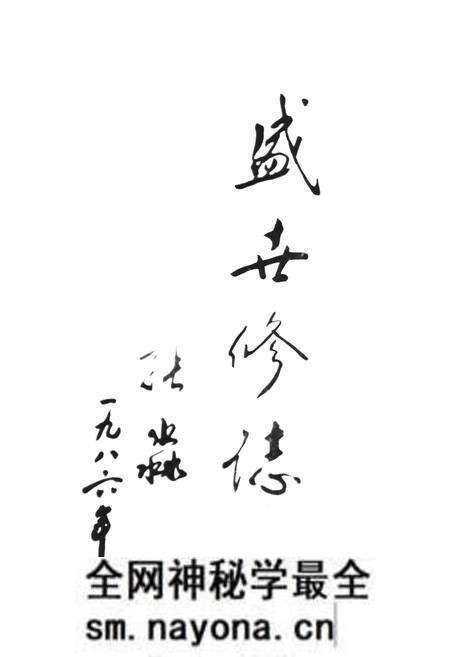 盛世修誌
张淼
一九八六年
全网神秘学最全
sm.nayona.cn